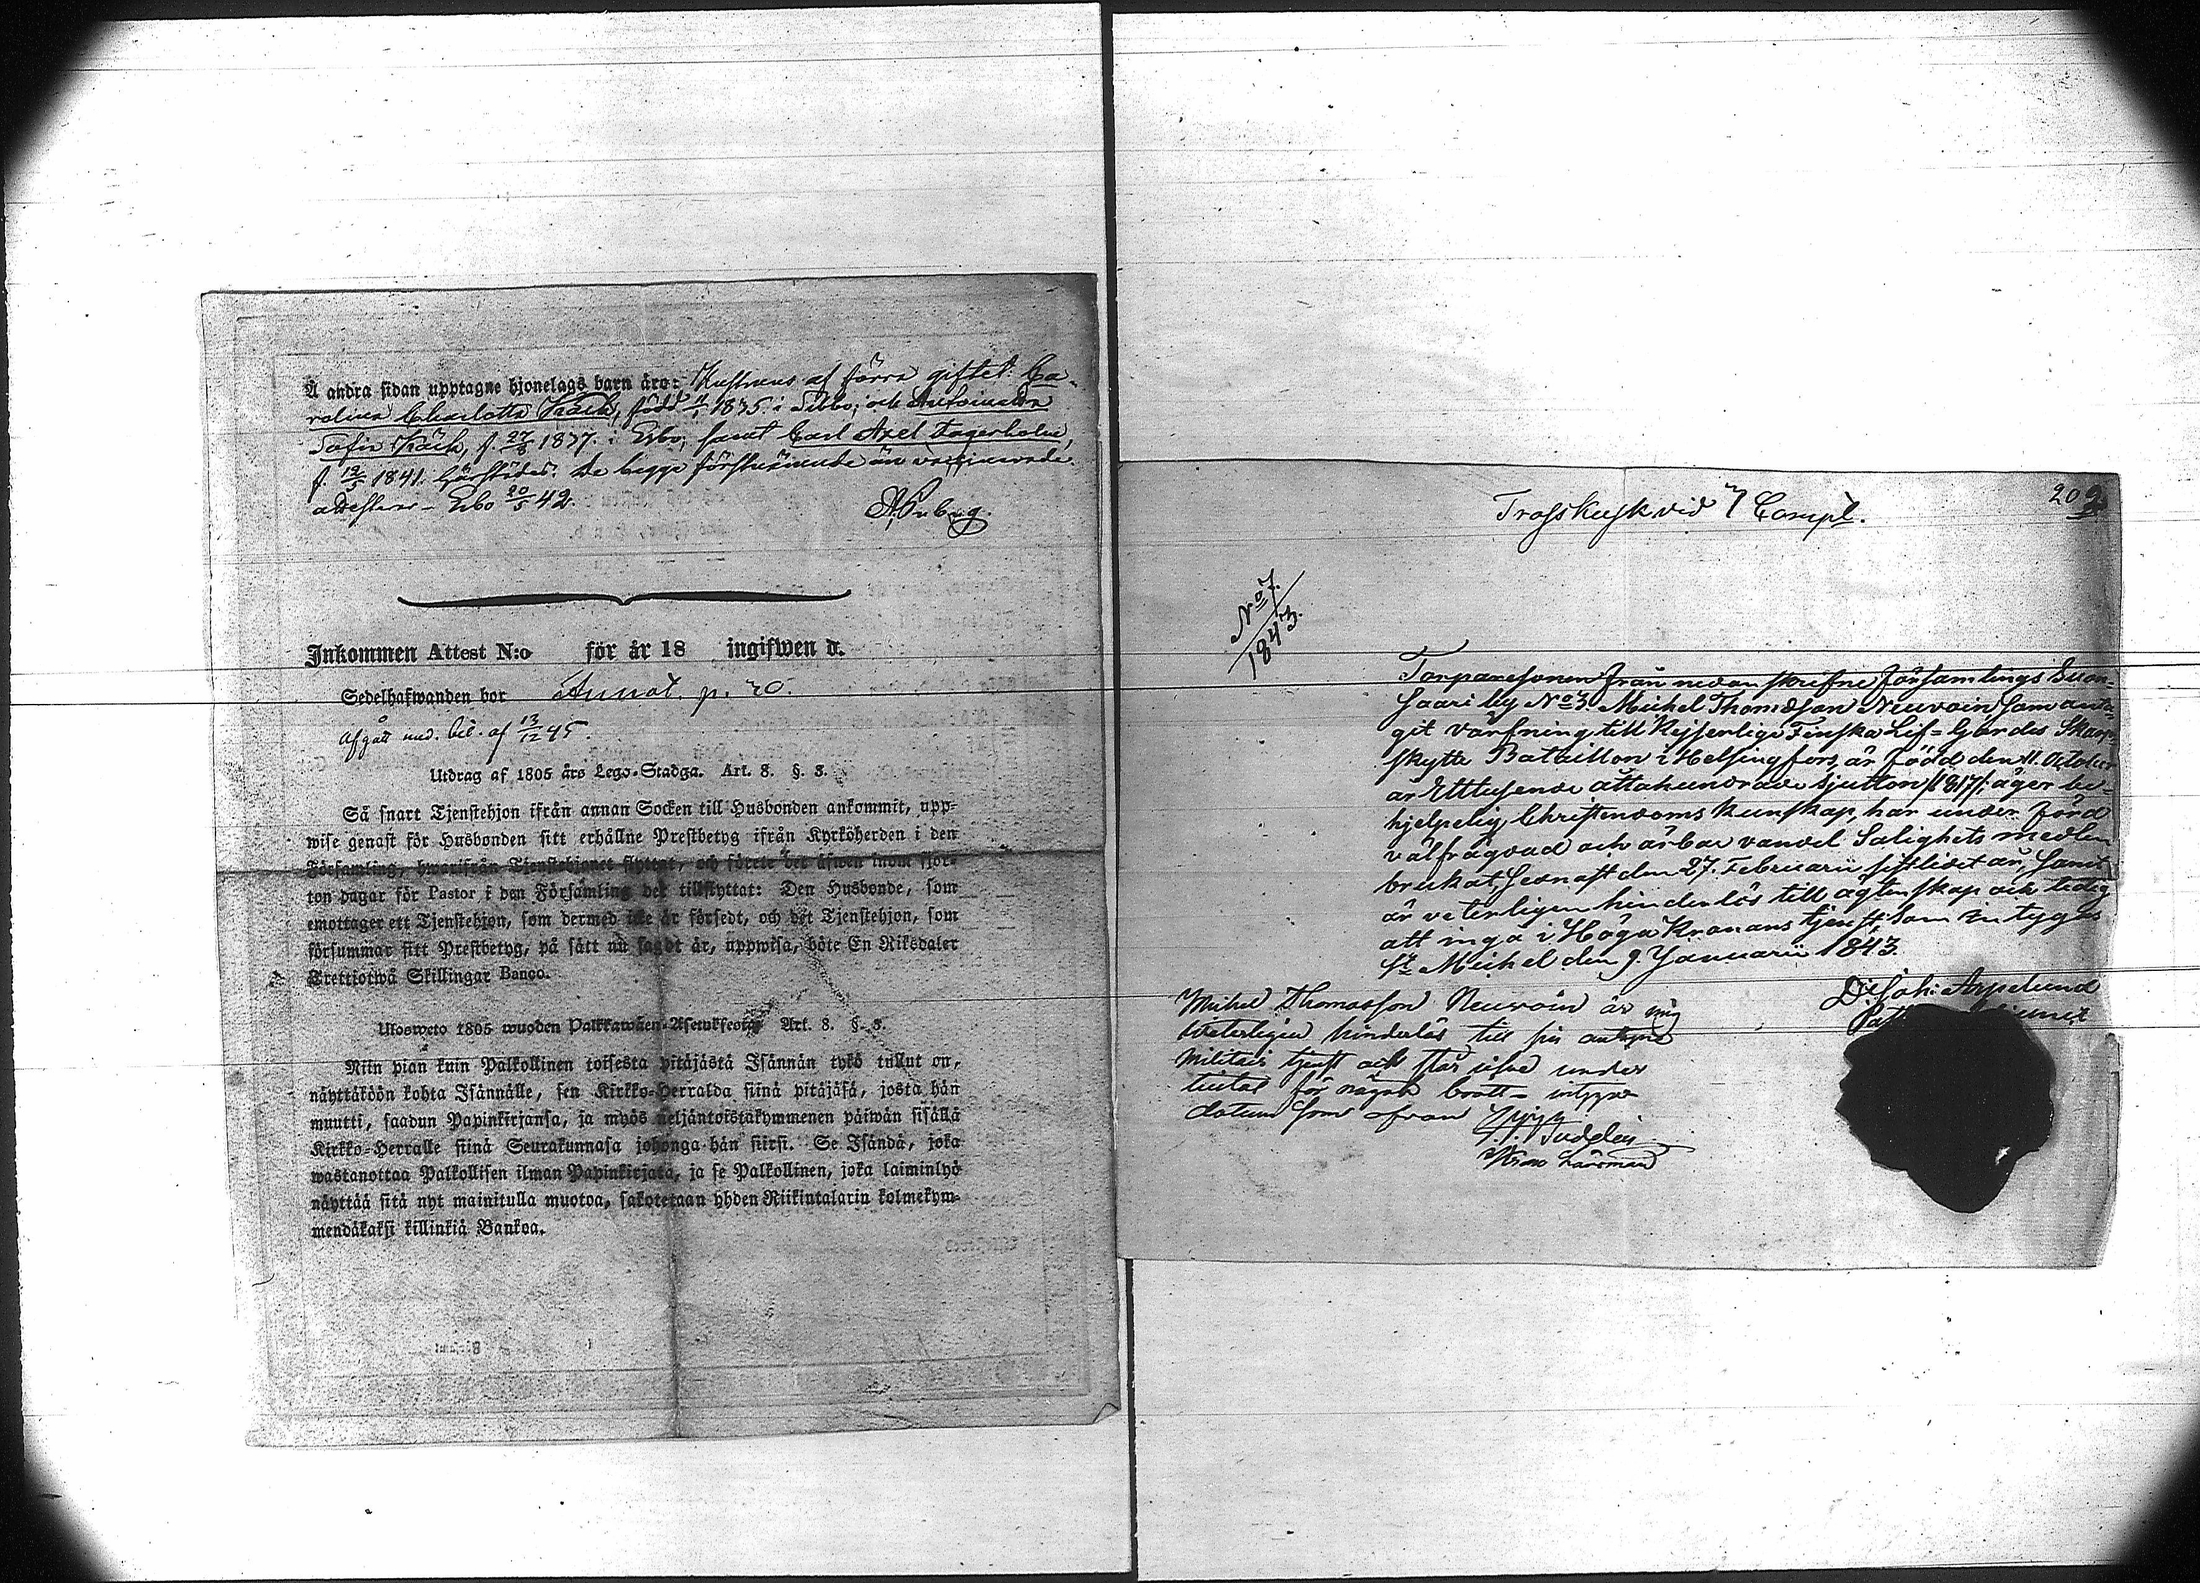 Å andra sidan upptagne hjonelags barn äro: Hustruns af förra giftet: Ca-
rolina Charlotta Käck, född 11/1 1835 i Sibbo; och
Sofia Käck, f. 27/8 1837 i Esbo; samt Carl Axel Fagerholm,
f. 12/5 1841 härstädes. De begge förstnämnde än vaccinerade.
attesterar – Esbo 20/5 42.
Inkommen Attest N:o för år 18 ingifwen d.
Sedelhafwanden bor p. 20.
Afgått med. bet. af 13/12 45.
Utdrag af 1805 års Lego-Stadga. Art. 8. §. 3.
Så snart Tjenstehjon ifrån annan Socken till Husbonden ankommit, upp-
wise genast för Husbonden sitt erhållne Prestbetyg ifrån Kyrköherden i den
Församling, hwarifrån Tjenstehjonet flyttat, och förete det äfwen inom fjor-
ton dagar för Pastor i den Församling det tillflyttat: Den Husbonde, som
emottager ett Tjenstehjon, som dermed icke är försedt, och det Tjenstehjon, som
försummar sitt Prestbetyg, på sätt nu sagdt är, uppwisa, böte En Riksdaler
Trettiotwå Skillingar Banco.
Ulosweto 1805 wuoden Palkkawäen-Asetuksesta Art. 8. §. 3.
Niin pian kuin Palkollinen toisesta pitäjästä Isännän tykö tullut on,
näyttäköön kohta Isännälle, sen Kirkko-Herralda siinä pitäjäsä, josta hän
muutti, saadun Papinkirjansa, ja myös neljäntoistakymmenen päiwän sisällä
Kirkko-Herralle siinä Seurakunnasa johonga hän siirsi. Se Isändä, joka
wastanottaa Palkollisen ilman Papinkirjata, ja se Palkollinen, joka laiminlyö
näyttää sitä nyt mainitulla muotoa, sakotetaan yhden Riikintalarin kolmekym-
mendäkaksi killinkiä Bankoa.
209
Trosskusk vid 7 Comp.
No 7.
1843.
Torparesonen från nedanskrifne församlings Suon-
saari by No 3 Michel Thomasson Neuvoin som anta-
git värfning till Kejserliga Finska Lif-Gardes Skarp-
skytte Bataillon i Helsingfors, är född den 11. October
år Ettusende åttahundrade sjutton /:1817:/, äger be-
hjelpelig Christendoms kunskap, har under förd
välfrägdad och ärbar vandel Salighets medlen
brukat, sednast den 27. Februarii sistledet år, samt
är veterligen hinderlös till ägtenskap och ledig
att ingå i Höga Kronans tjenst; som intygas
St Michel den 9. Januarii 1843.
Joh: Arpelund
Michel Thomasson Neuvoin är mig
veterligen hinderlös till sin antagna
Militair tjenst och står icke under
tiltal för något brott – intygar
datum som ofvan
Krono Länsman